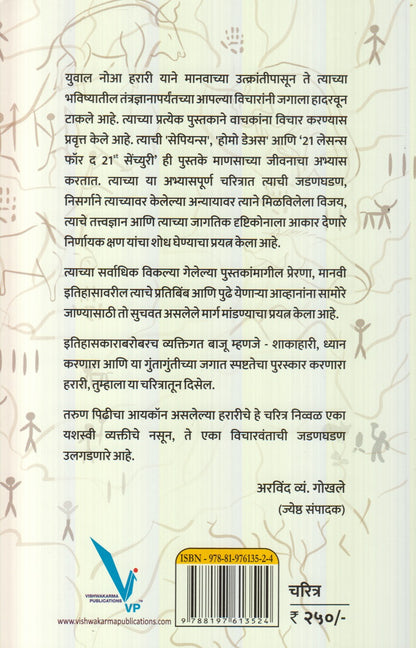 युवाल नोआ हरारी याने मानवाच्या उत्क्रांतीपासून ते त्याच्या
भविष्यातील तंत्रज्ञानापर्यंतच्या आपल्या विचारांनी जगाला हादरवून
टाकले आहे. त्याच्या प्रत्येक पुस्तकाने वाचकांना विचार करण्यास
प्रवृत्त केले आहे. त्याची 'सेपियन्स', 'होमो डेअस' आणि '21 लेसन्स
फॉर द 21st सेंच्युरी' ही पुस्तके माणसाच्या जीवनाचा अभ्यास
करतात. त्याच्या या अभ्यासपूर्ण चरित्रात त्याची जडणघडण,
निसर्गाने त्याच्यावर केलेल्या अन्यायावर त्याने मिळविलेला विजय,
त्याचे तत्त्वज्ञान आणि त्याच्या जागतिक दृष्टिकोनाला आकार देणारे
निर्णायक क्षण यांचा शोध घेण्याचा प्रयत्न केला आहे.
त्याच्या सर्वाधिक विकल्या गेलेल्या पुस्तकांमागील प्रेरणा, मानवी
इतिहासावरील त्याचे प्रतिबिंब आणि पुढे येणाऱ्या आव्हानांना सामोरे
जाण्यासाठी तो सुचवत असलेले मार्ग मांडण्याचा प्रयत्न केला आहे.
इतिहासकाराबरोबरच व्यक्तिगत बाजू म्हणजे - शाकाहारी, ध्यान
करणारा आणि या गुंतागुंतीच्या जगात स्पष्टतेचा पुरस्कार करणारा
हरारी, तुम्हाला या चरित्रातून दिसेल.
तरुण पिढीचा आयकॉन असलेल्या हरारीचे हे चरित्र निव्वळ एका
यशस्वी व्यक्तीचे नसून, ते एका विचारवंताची जडणघडण
उलगडणारे आहे.
अरविंद व्यं. गोखले
(ज्येष्ठ संपादक)
VISHWAKARMA
PUBLICATIONS
VP™
www.vishwakarmapublications.com
ISBN - 978-81-976135-2-4
9 788197 613524
चरित्र
₹ २५०/-